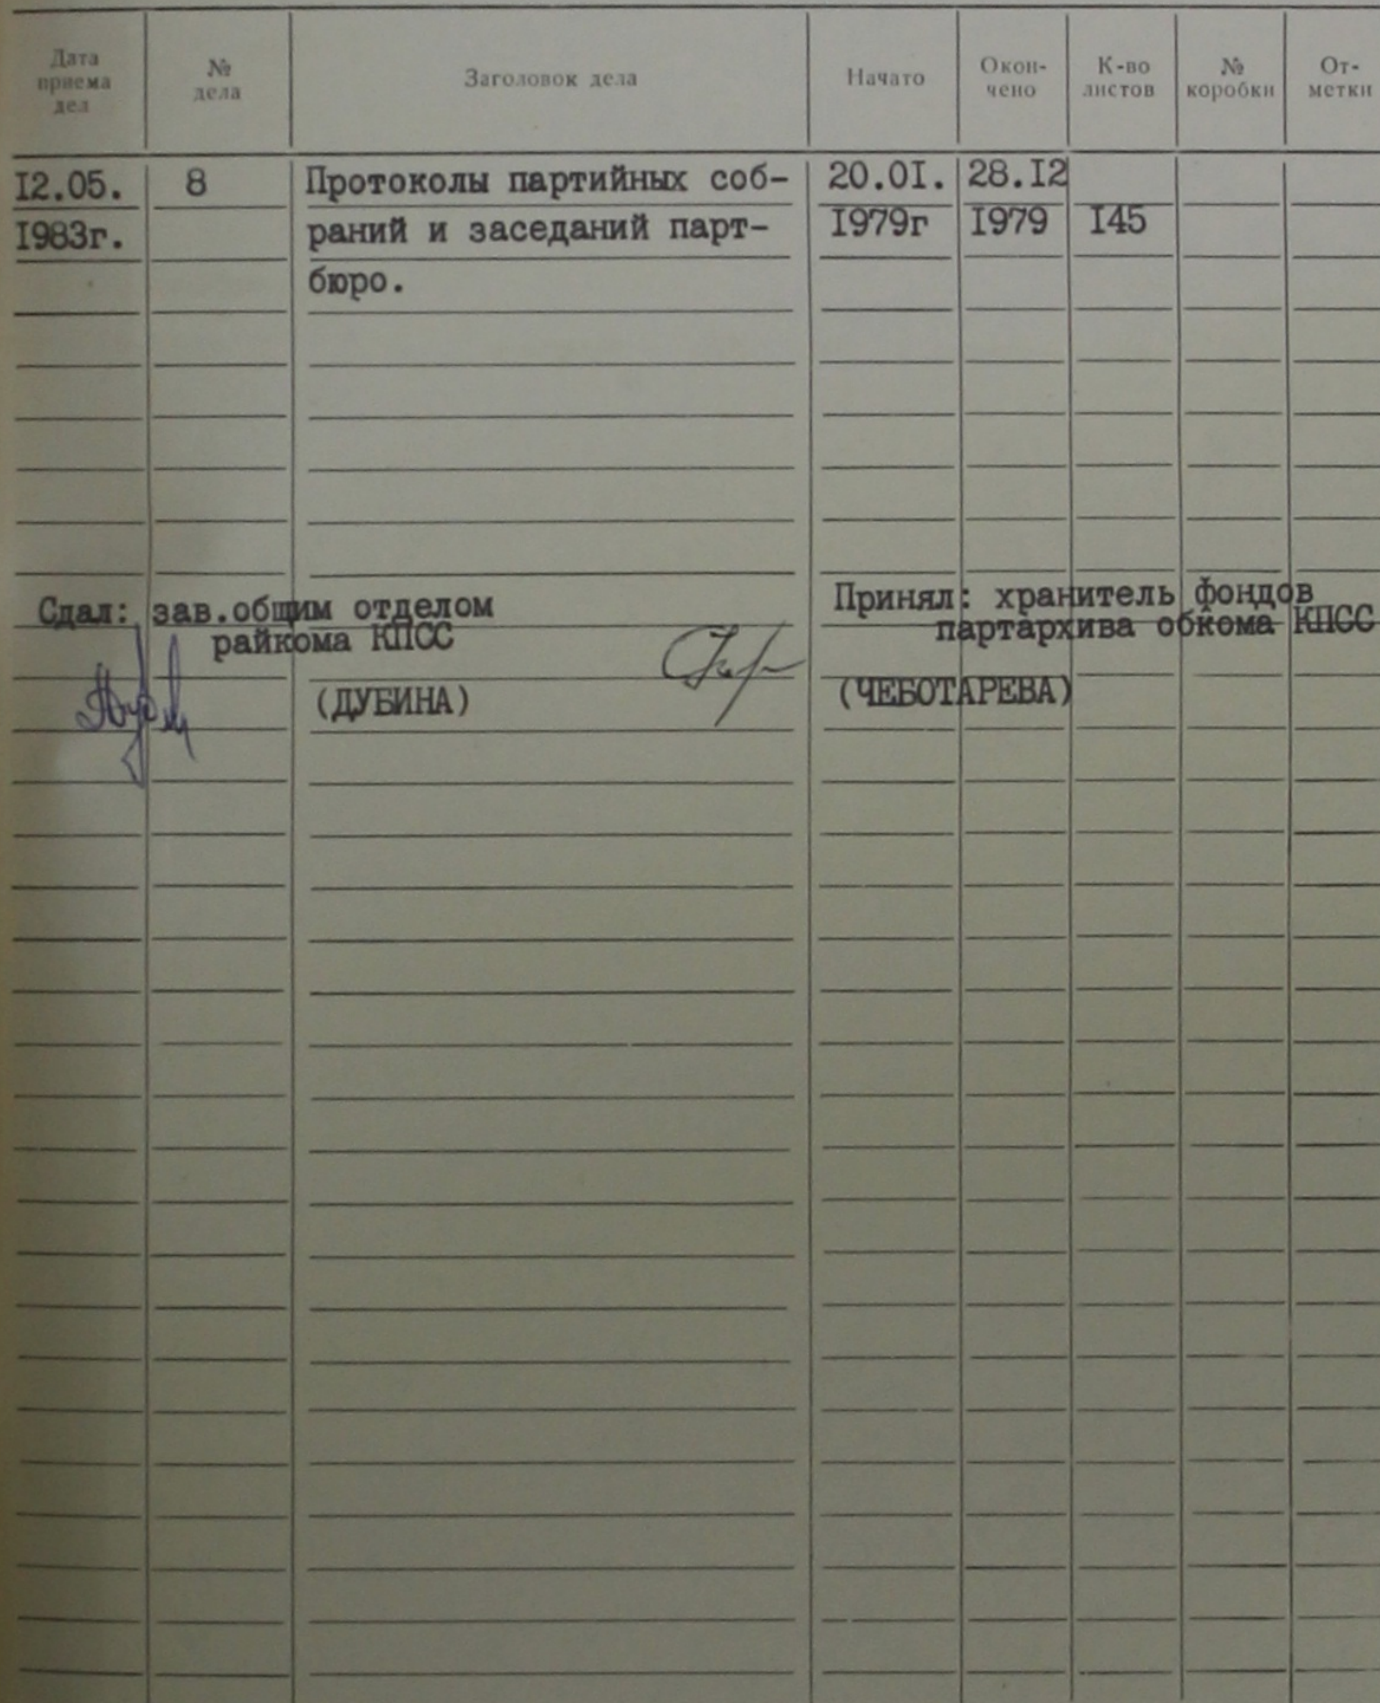 Дата приема дел | № дела | Заголовок дела | Начато | Окон-чено | К-во листов | № коробки | От-метки
I2.05. | 8 | Протоколы партийных соб- | 20.0I. | 28.I2
I983г. | раний и заседаний парт- | I979г | I979 | I45
бюро.
Сдал: зав.общим отделом
райкома КПСС
(ДУБИНА)
Принял: хранитель фондов
партархива обкома КПСС
(ЧЕБОТАРЕВА)